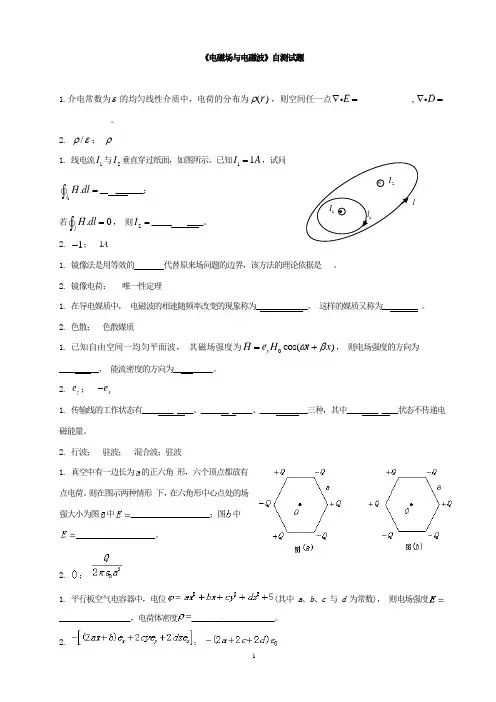 《电磁场与电磁波》自测试题
1.介电常数为ε的均匀线性介质中，电荷的分布为ρ(r)，则空间任一点∇•E = ____________ , ∇•D =
_____________。
2. ρ/ε； ρ
1. 线电流I₁与I₂垂直穿过纸面，如图所示。已知I₁=1A，试问
∮l₁ H.dl = __ _______；
若∮l H.dl = 0， 则I₂ = _____ ____。
2. −1； 1A
I₂
I₁
l₁
l
1. 镜像法是用等效的_______代替原来场问题的边界，该方法的理论依据是___。
2. 镜像电荷； 唯一性定理
1. 在导电媒质中， 电磁波的相速随频率改变的现象称为_____________， 这样的媒质又称为_________ 。
2. 色散； 色散媒质
1. 已知自由空间一均匀平面波， 其磁场强度为H = e_y H₀ cos(ωt + βx)， 则电场强度的方向为
__________， 能流密度的方向为__________。
2. e_z； −e_x
1. 传输线的工作状态有________ ____、_______ _____、____________三种，其中________ ____状态不传递电
磁能量。
2. 行波； 驻波； 混合波；驻波
1. 真空中有一边长为a的正六角 形，六个顶点都放有
点电荷。则在图示两种情形 下，在六角形中心点处的场
强大小为图a中E=____________________；图b中
E=____________________。
+Q −Q
a
−Q O +Q
+Q −Q
图(a)
+Q −Q
a
+Q O +Q
−Q −Q
图(b)
2. 0； Q/2πε₀a²
1. 平行板空气电容器中，电位φ=ax²+bx+cy²+dz²+5(其中 a、b、c 与 d 为常数)， 则电场强度E=
__________________，电荷体密度ρ=_____________________。
2. −[(2ax+b)e_x+2cye_y+2dze_z]； −(2a+2c+2d)ε₀
1